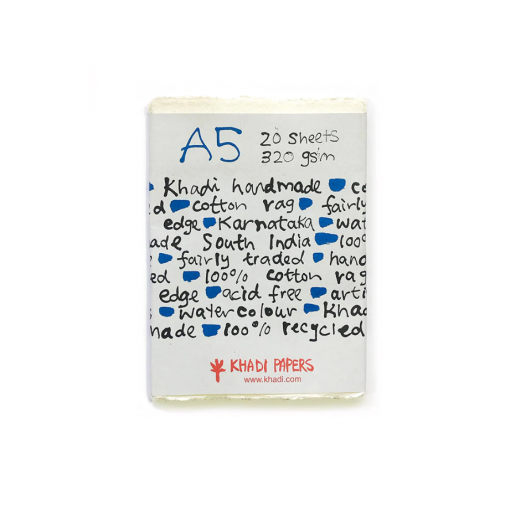 A5 20 sheets
320 gsm
Khadi handmade co
d cotton rag fairly
edge Karnataka wat
ade South India 100
fairly traded hand
ed 100% cotton rag
edge acid free arti
s watercolour Khad
made 100% recycled
KHADI PAPERS
www.khadi.com